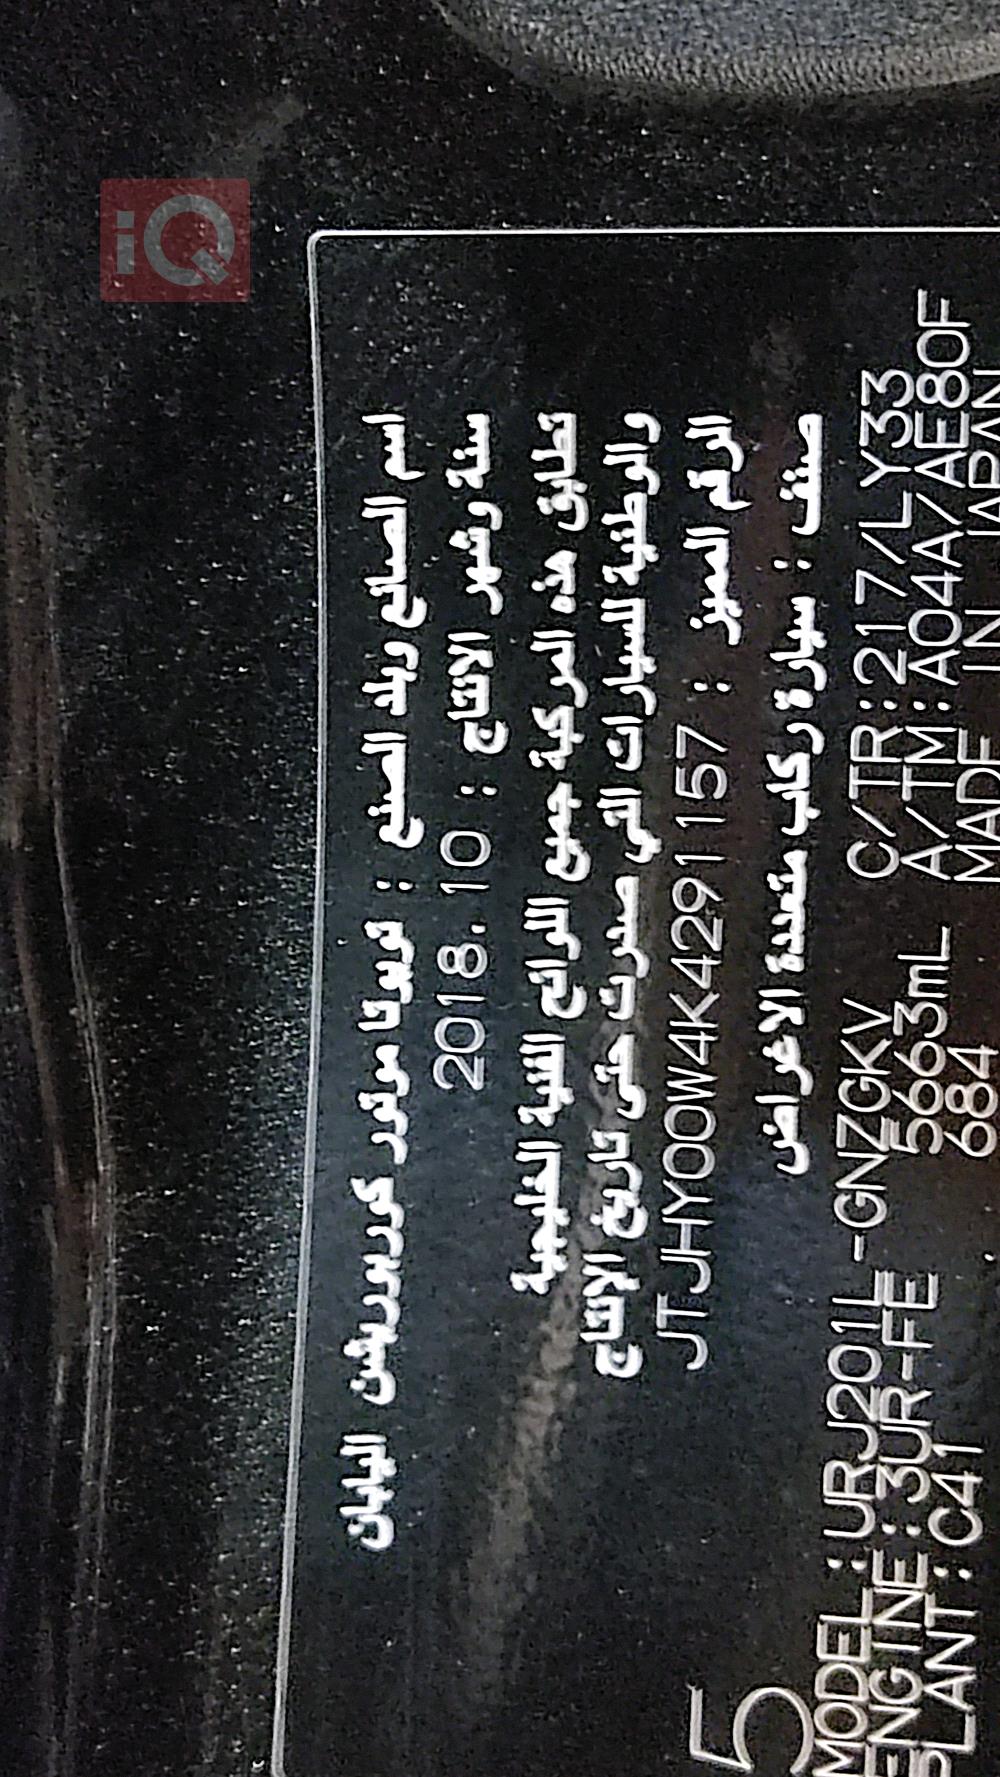 iQ
اسم الصانع وبلد الصنع : تويوتا موتور كوربوريشن اليابان
سنة وشهر الانتاج : 2018.10
تطابق هذه المركبة جميع اللوائح الفنية الخليجية
والوطنية للسيارات التي صدرت حتى تاريخ الانتاج
الرقم المميز : JTJHY00W4K4291157
صنف : سيارة ركاب متعددة الاغراض
5
MODEL:URJ201L-GNZGKV C/TR:217/LY33
ENGINE:3UR-FE 5663mL A/TM:A04A/AE80F
PLANT:C41 684 MADE IN JAPAN